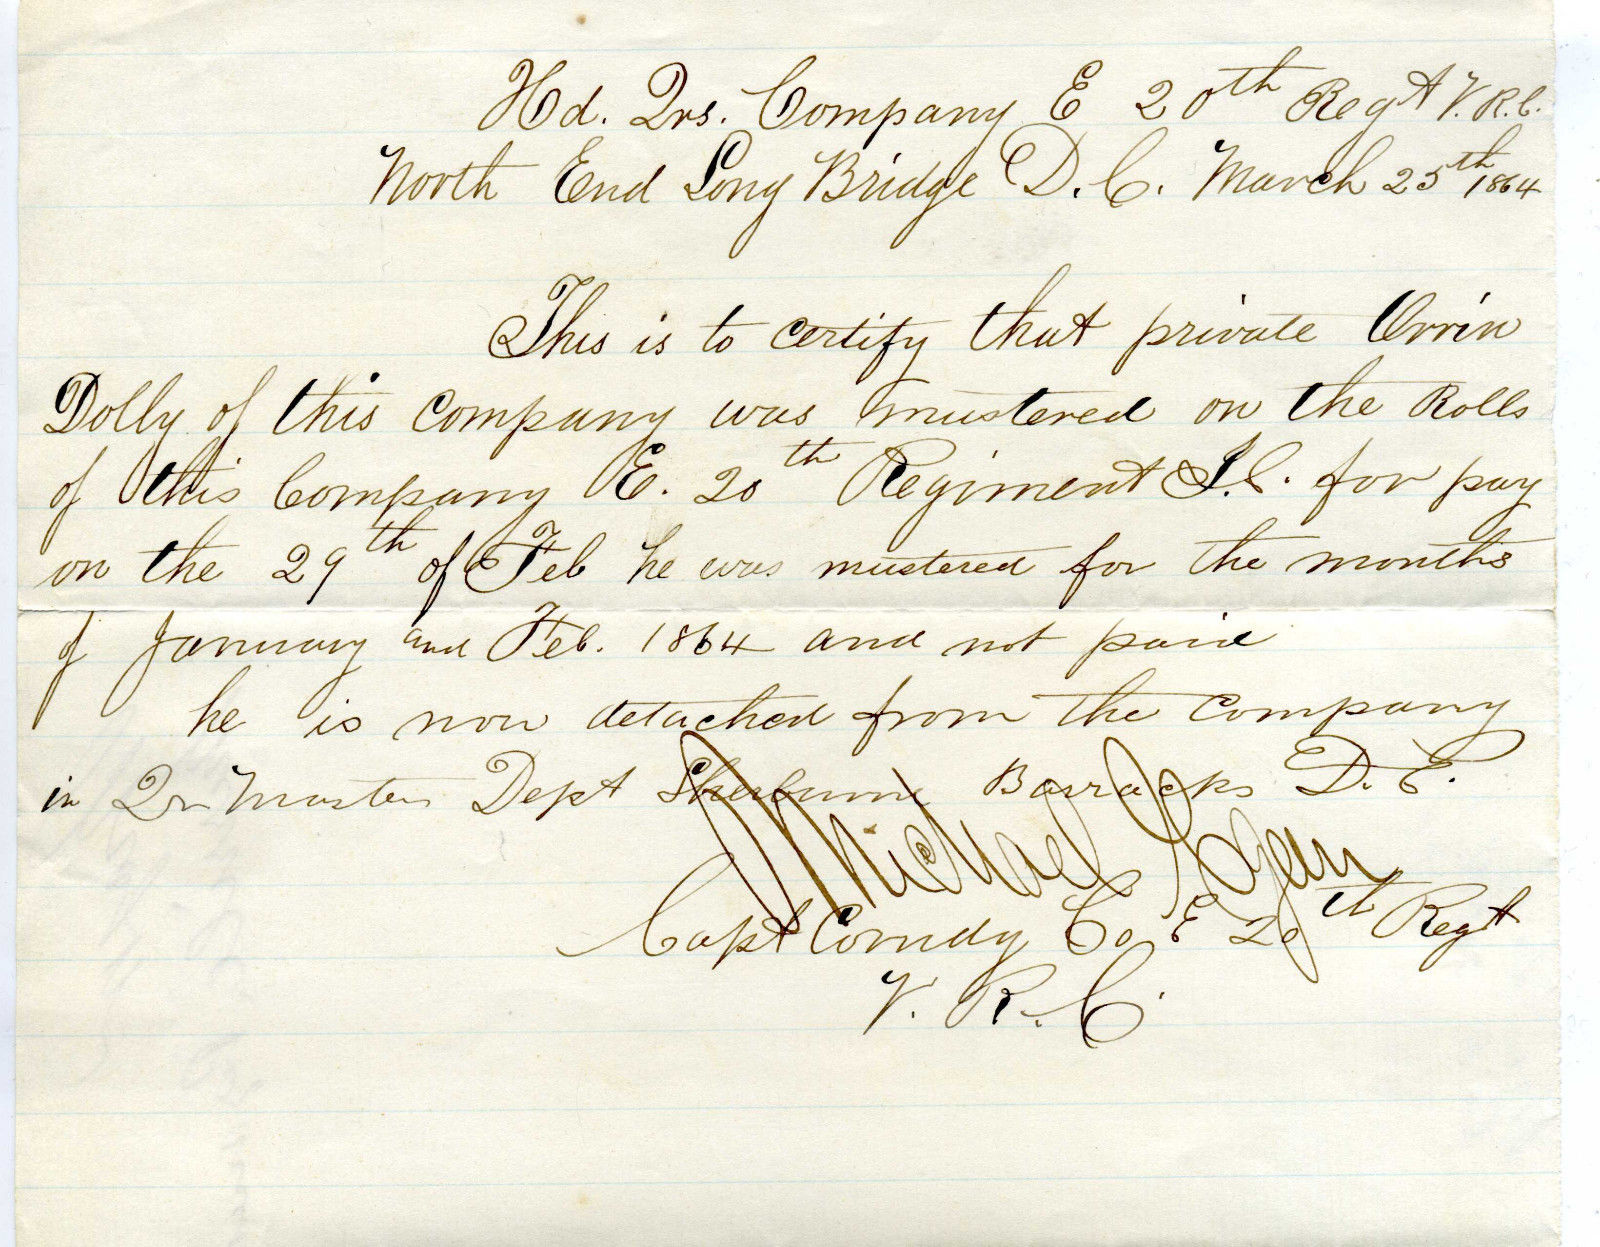 Hd. Qrs. Company E 20th Regt V.R.C.
North End Long Bridge D.C. March 25th 1864
This is to certify that private Orrin
Dolly of this company was mustered on the Rolls
of this Company E. 20th Regiment I.C. for pay
on the 29th of Feb he was mustered for the months
of January and Feb. 1864 and not paid
he is now detached from the company
in Qr Master Dept Sherburne Barracks D.C.
Michael
Capt Comdy Co E 20th Regt
V.R.C.